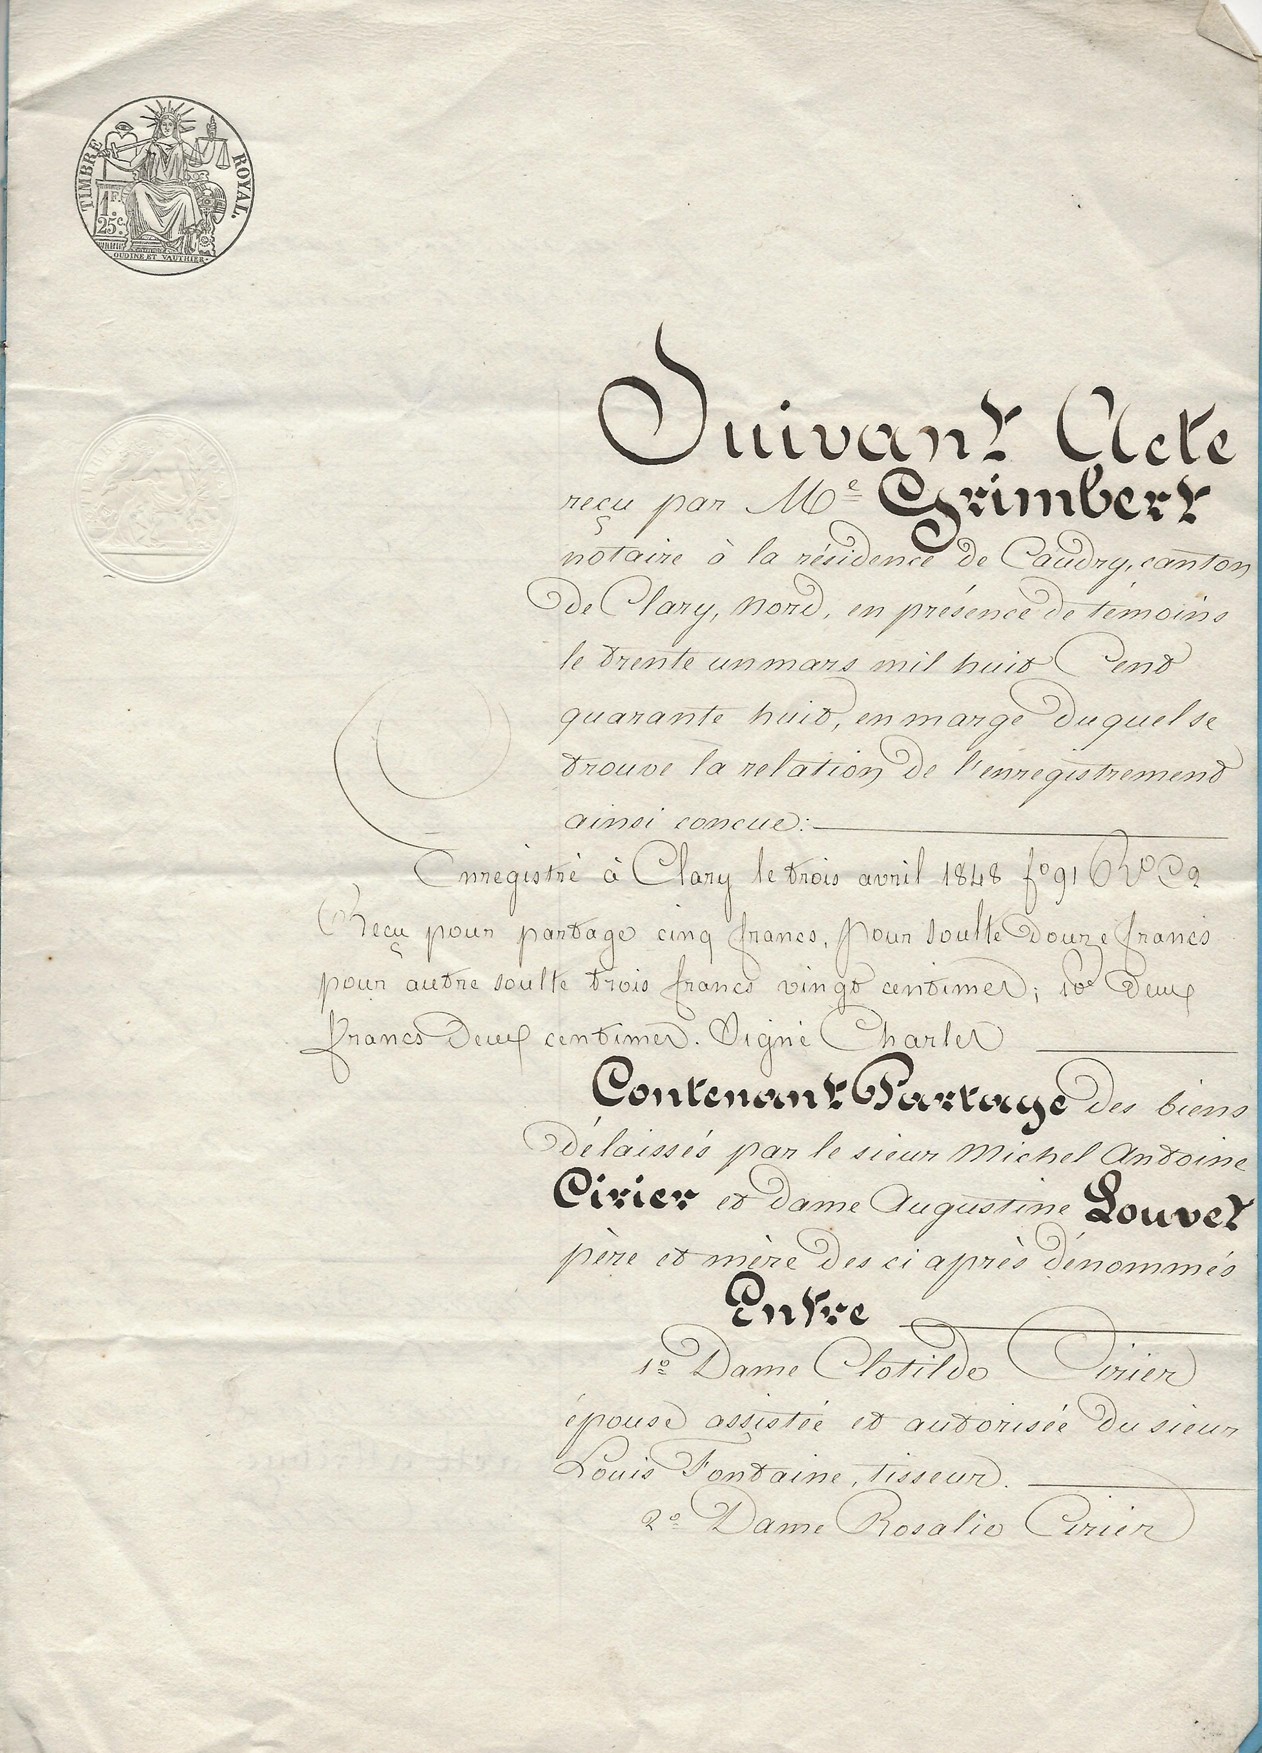 TIMBRE ROYAL.
1F.
25c.
OUDINÉ ET VAUTHIER.
Suivant Acte
reçu par Me Grimbert
notaire à la résidence de Caudry, canton
de Clary, Nord, en présence de témoins
le trente un mars mil huit Cent
quarante huit, en marge duquel se
trouve la relation de l'enregistrement
ainsi concue:
Enregistré à Clary le trois avril 1848 fo 91 Ro C2
Reçu pour partage cinq francs, pour soulte douze francs
pour autre soulte trois francs vingt centimes; 10e Deux
francs Deux centimes. Signé Charlet
Contenant Partage des biens
délaissés par le sieur Michel Antoine
Cirier et dame Augustine Louvet
père et mère des ci après dénommés
Entre
1o Dame Clotilde Cirier
épouse assistée et autorisée du sieur
Louis Fontaine, tisseur.
2o Dame Rosalie Cirier